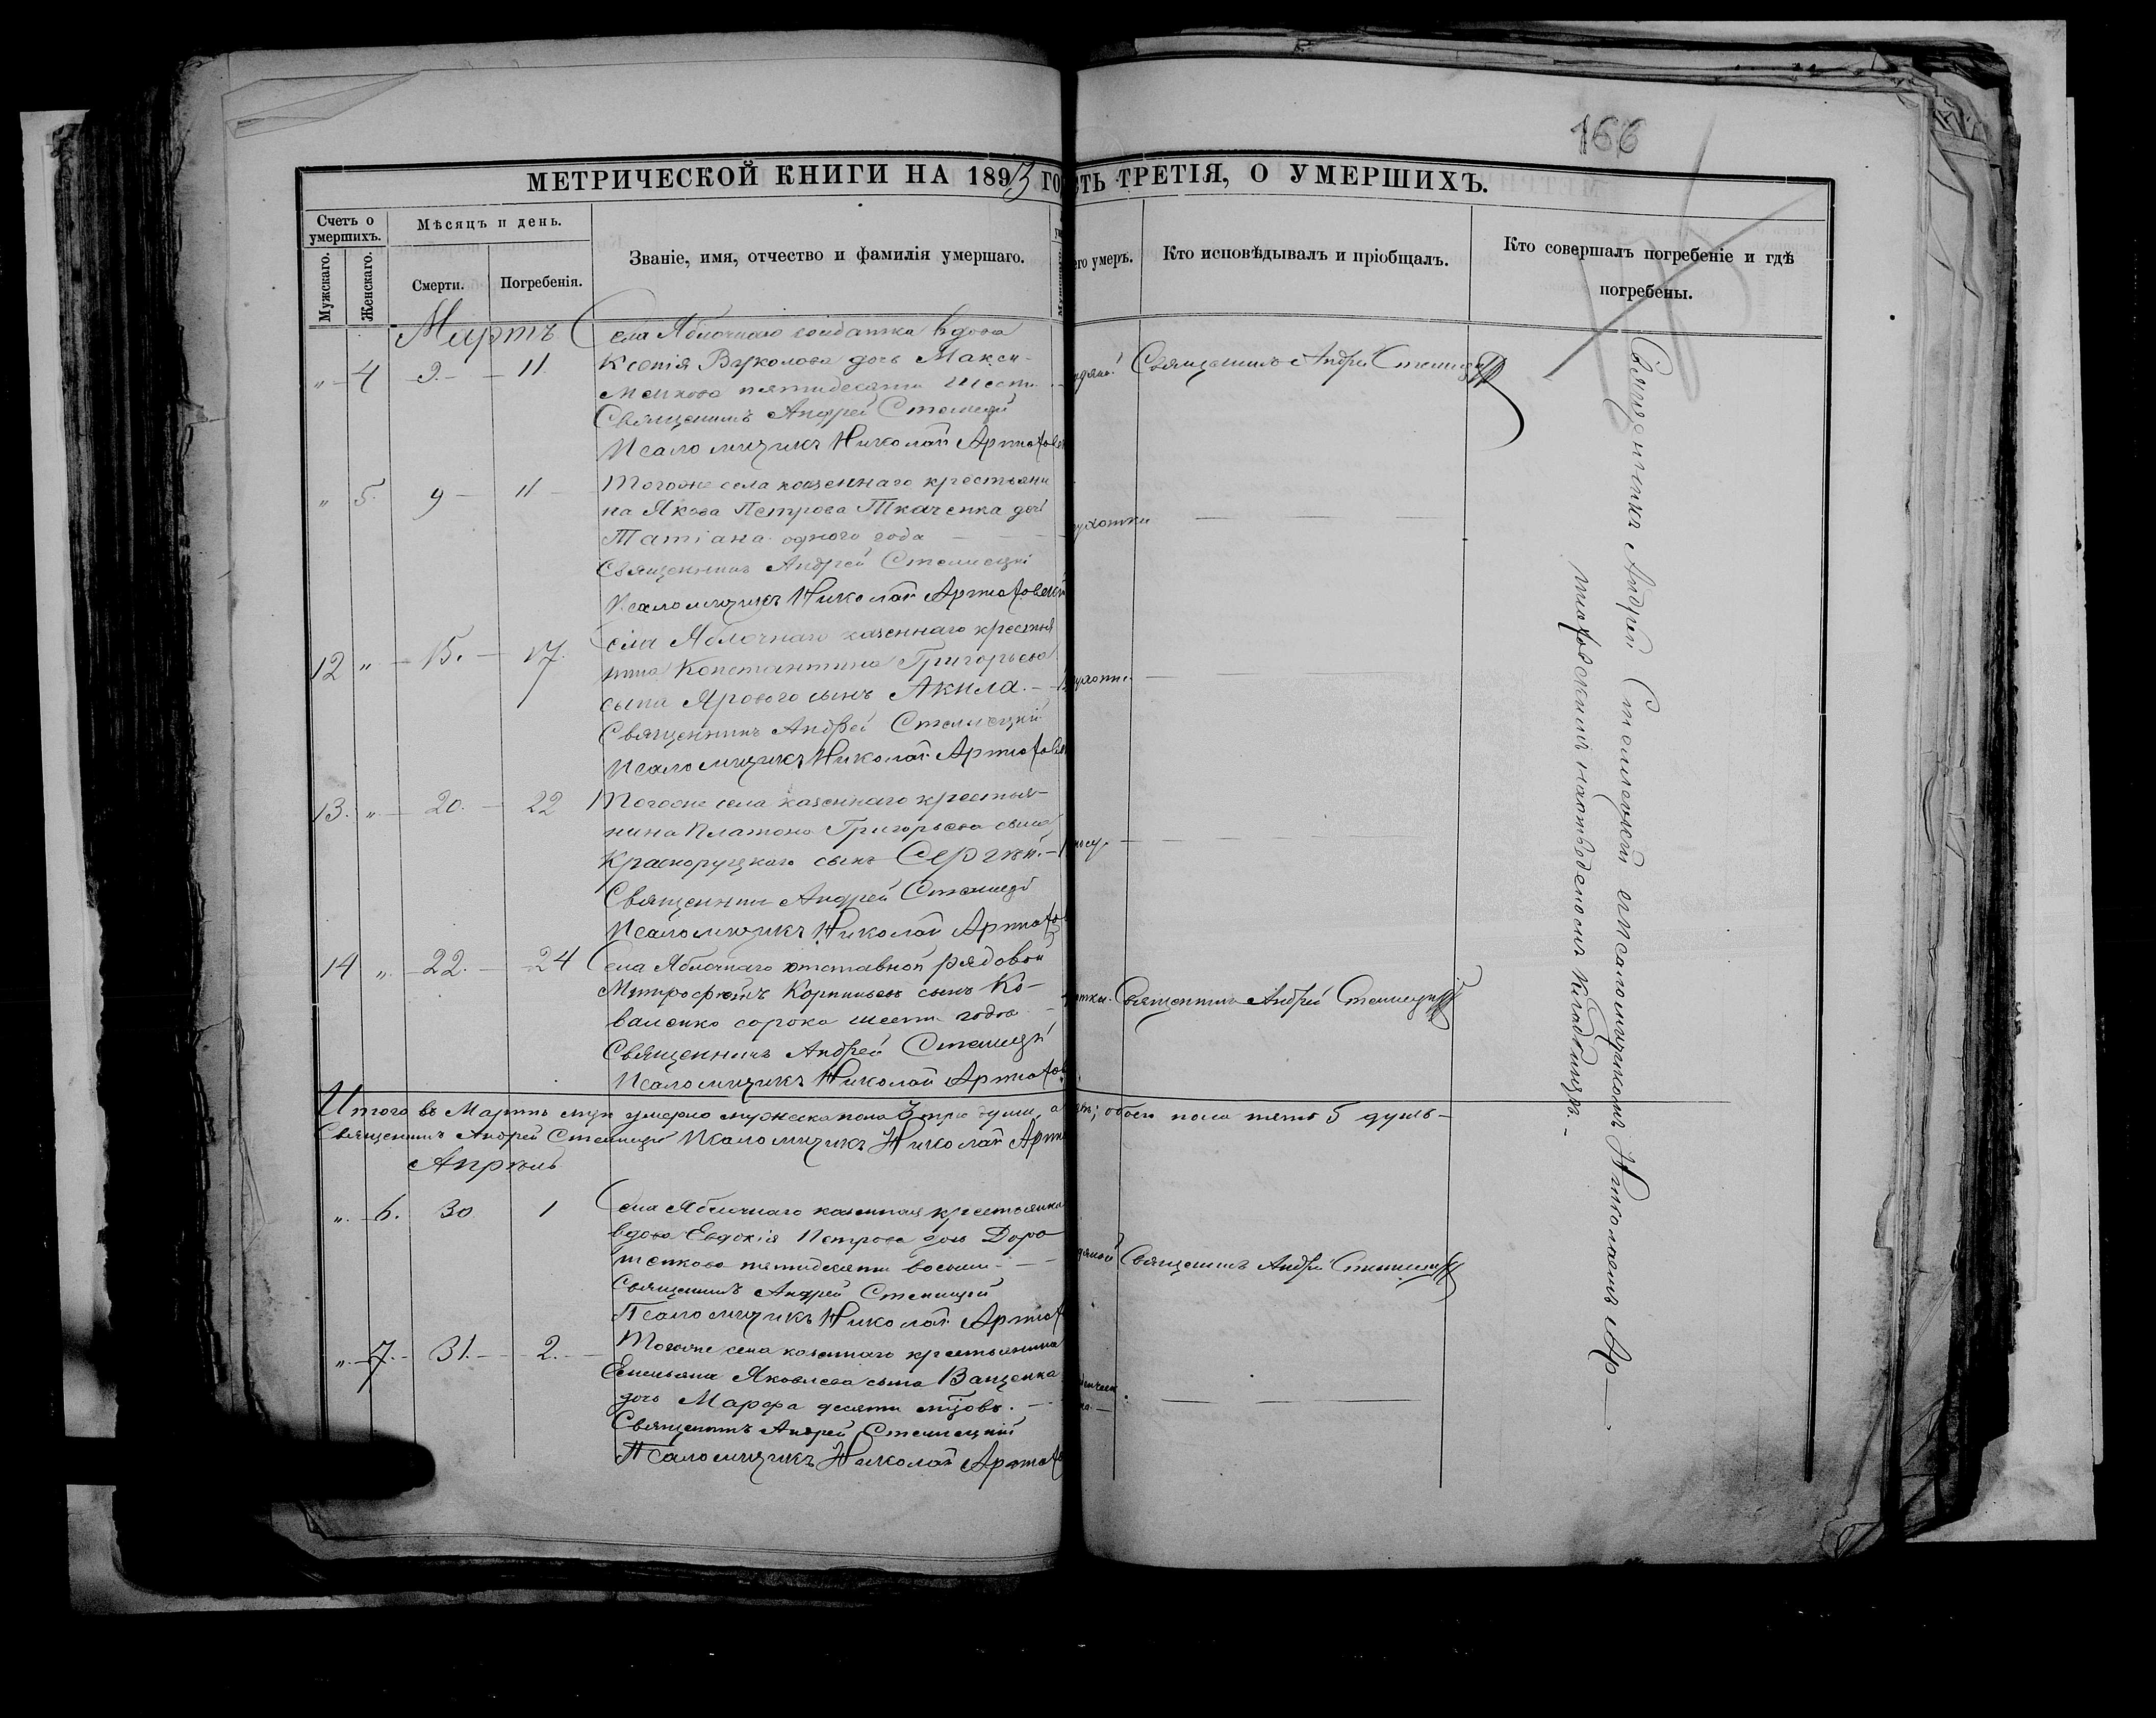 166
МЕТРИЧЕСКОЙ КНИГИ НА 1893 ГО
СТЬ ТРЕТІЯ, О УМЕРШИХЪ.
Счетъ о умершихъ.
Мужскаго.
Женскаго.
Мѣсяцъ и день.
Смерти.
Погребенія.
Званіе, имя, отчество и фамилія умершаго.
его умеръ.
Кто исповѣдывалъ и пріобщалъ.
Кто совершалъ погребеніе и гдѣ
погребены.
Мартъ
Села Яблочнаго солдатка вдова
" 4 9. 11. Ксенія Вуколова дочь Макси-
менкова пятидесяти шести
Священникъ Андрей Стеллецкій
Псаломщикъ Николай Артюхов
Священникъ Андрей Стеллецкій
" 5. 9 11 Тогоже села казеннаго крестьяни
на Якова Петрова Ткаченка дочь
Татіана одного года
Священникъ Андрей Стеллецкій
Псаломщикъ Николай Артюховскій
12 " 15. 17. Села Яблочнаго казеннаго крестья
нина Константина Григорьева
сына Ярового сынъ Акила.
Священникъ Андрей Стеллецкій
Псаломщикъ Николай Артюхов
13. " 20. 22 Тогоже села казеннаго крестья-
нина Платона Григорьева сына
Краснорузкаго сынъ Сергѣй.
Священникъ Андрей Стеллецкій
Псаломщикъ Николай Артюхо
14 " 22. 24 Села Яблочнаго отставной рядовой
Митрофанъ Корнильевъ сынъ Ко-
валенко сорока шести годовъ
Священникъ Андрей Стеллецкій
Псаломщикъ Николай Артюхов
Священникъ Андрей Стеллецкій
Итого въ Мартѣ мцѣ умерло мужеска пола 3 три души, а
обоего пола пять 5 душъ
Священникъ Андрей Стеллецкій Псаломщикъ Николай Артю
Апрѣль
" 6. 30 1 Села Яблочнаго казенная крестьянка
вдова Евдокія Петрова дочь Доро
шенкова пятидесяти восьми
Священникъ Андрей Стеллецкій
Псаломщикъ Николай Артюх
Священникъ Андрей Стеллецкій
" 7. 31. 2. Тогоже села казеннаго крестьянина
Емельяна Яковлева сына Ващенка
дочь Марфа десяти мцовъ.
Священникъ Андрей Стеллецкій
Псаломщикъ Николай Артюх
Священникъ Андрей Стеллецкій съ Псаломщикомъ Николаемъ Ар
тюховскимъ на отведенномъ кладбищѣ.